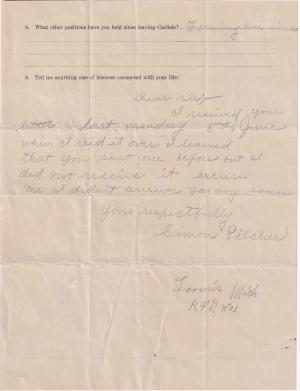 8. What other positions have you held since leaving Carlisle? Farming ever since
9. Tell me anything else of interest connected with your life:
Dear sir;
I received your
letter last monday 5th June
when I read it over I learned
that you sent one before but I
did not receive it excuse
me I did'ent answer you any sooner
Yours respectfully
Simon Pilcher
Loomis Mich
R.F.D. No1